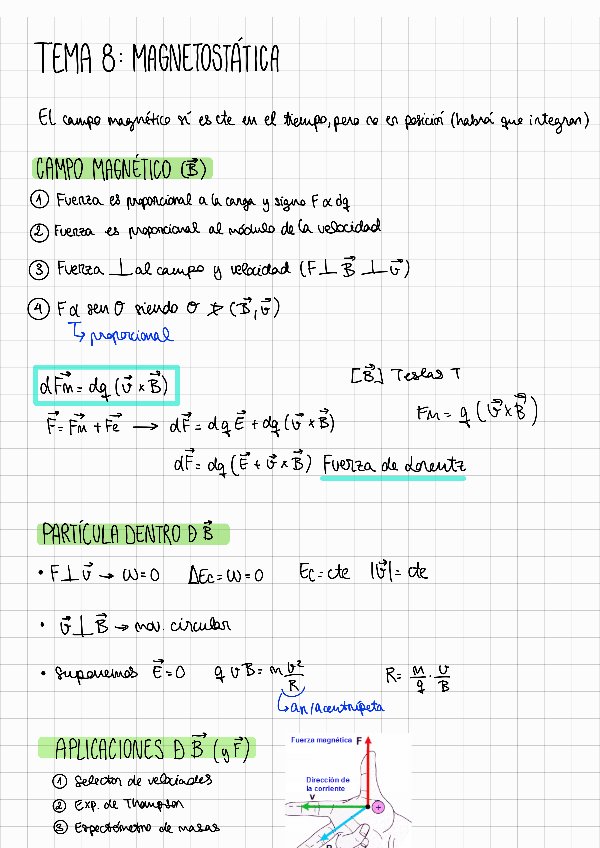 TEMA 8: MAGNETOSTÁTICA
El campo magnético sí es cte en el tiempo, pero no en posición (habrá que integrar)
CAMPO MAGNÉTICO (B⃗)
① Fuerza es proporcional a la carga y signo F α dq
② Fuerza es proporcional al módulo de la velocidad
③ Fuerza ⊥ al campo y velocidad (F ⊥ B⃗ ⊥ v⃗)
④ F α sen θ siendo θ ∢ (B⃗, v⃗)
↳ proporcional
dF⃗m = dq (v⃗ × B⃗)
[B⃗] Teslas T
F⃗ = F⃗m + F⃗e → dF⃗ = dq E⃗ + dq (v⃗ × B⃗)
Fm = q (v⃗ × B⃗)
dF⃗ = dq (E⃗ + v⃗ × B⃗) Fuerza de Lorentz
PARTÍCULA DENTRO D B⃗
• F ⊥ v⃗ → W = 0 ΔEc = W = 0 Ec = cte |v⃗| = cte
• v⃗ ⊥ B⃗ → mov. circular
• Suponemos E⃗ = 0 q v B = m v²/R R = m/q · v/B
↳ an/acentrípeta
APLICACIONES D B⃗ (y F⃗)
① Selector de velocidades
② Exp. de Thompson
③ Espectómetro de masas
Fuerza magnética F
Dirección de
la corriente
v
+